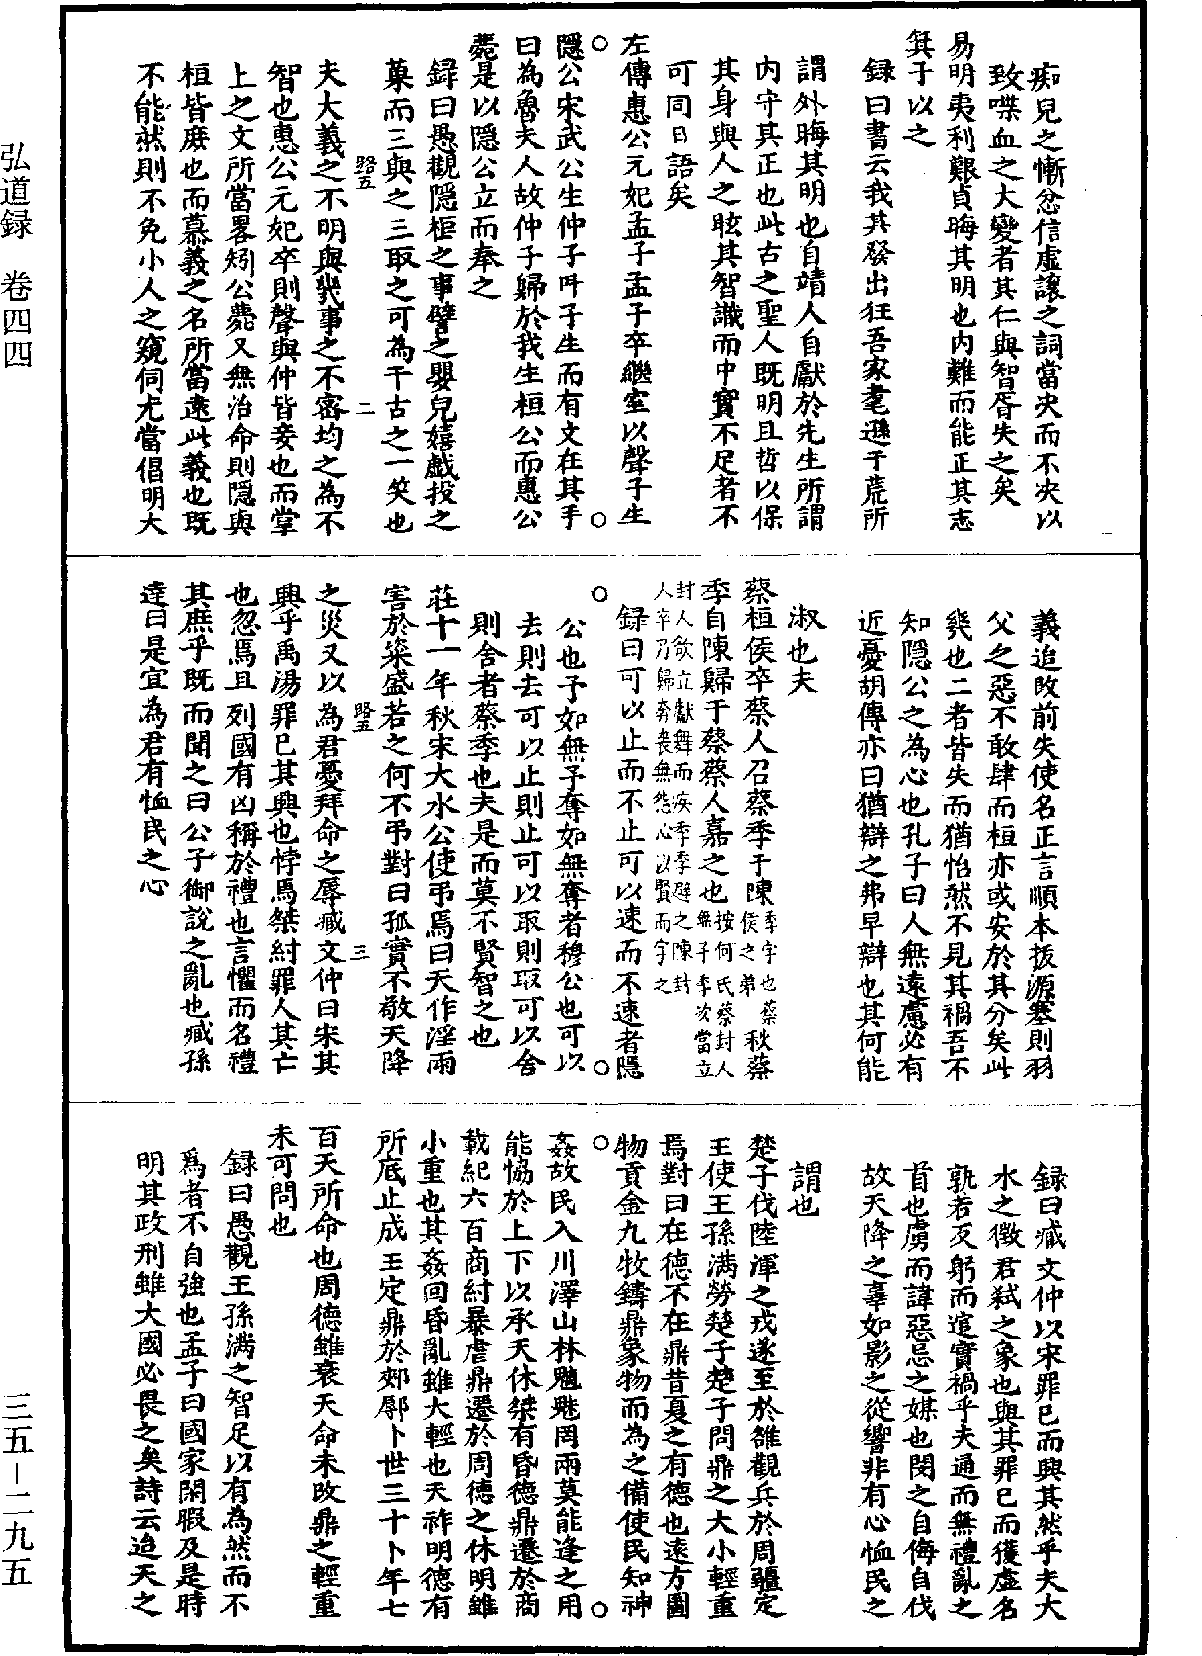 弘道録　卷四四
三五－二九五
痴兒之慚忿信虛讓之詞當決而不決以
致喋血之大變者其仁與智胥失之矣
易明夷利艱貞晦其明也内難而能正其志
箕子以之
録曰書云我其發出狂吾家耄遜于荒所
謂外晦其明也自靖人自獻於先生所謂
内守其正也此古之聖人既明且哲以保
其身與人之眩其智識而中實不足者不
可同日語矣
左傳惠公元妃孟子孟子卒繼室以聲子生
○　○
隱公宋武公生仲子叶子生而有文在其手
曰為魯夫人故仲子歸於我生桓公而惠公
薨是以隱公立而奉之
録曰愚觀隱桓之事譬之嬰兒嬉戲投之
菓而三與之三取之可為千古之一笑也
路五　二
夫大義之不明與幾事之不密均之為不
智也惠公元妃卒則聲與仲皆妾也而掌
上之文所當畧矧公薨又無治命則隱與
桓皆庶也而慕義之名所當遠此義也既
不能然則不免小人之窺伺尤當倡明大
義追改前失使名正言順本拔源塞則羽
父之惡不敢肆而桓亦或安於其分矣此
幾也二者皆失而猶怡然不見其禍吾不
知隱公之為心也孔子曰人無遠慮必有
近憂胡傳亦曰猶辯之弗早辯也其何能
淑也夫
蔡桓侯卒蔡人召蔡季于陳季字也蔡侯之弟秋蔡
季自陳歸于蔡蔡人嘉之也按何氏蔡封人無子季次當立
封人欲立獻舞而疾季季避之陳封
人卒乃歸奔喪無怨心以賢而字之
録曰可以止而不止可以速而不速者隱
○　○
公也予如無予奪如無奪者穆公也可以
去則去可以止則止可以取則取可以舍
則舍者蔡季也夫是而莫不賢智之也
莊十一年秋宋大水公使弔焉曰天作淫雨
害於粢盛若之何不弔對曰孤實不敬天降
路五　三
之災又以為君憂拜命之辱臧文仲曰宋其
興乎禹湯罪已其興也悖焉桀紂罪人其亡
也忽焉且列國有凶稱於禮也言懼而名禮
其庶乎既而聞之曰公子御說之亂也臧孫
達曰是宜為君有恤民之心
録曰臧文仲以宋罪已而興其然乎夫大
水之徵君弒之象也與其罪已而獲虛名
孰若反躬而逭實禍乎夫通而無禮亂之
首也虜而諱惡忌之媒也閔之自侮自伐
故天降之辜如影之從響非有心恤民之
謂也
楚子伐陸渾之戎遂至於雒觀兵於周疆定
王使王孫满勞楚子楚子問鼎之大小輕重
焉對曰在德不在鼎昔夏之有德也遠方圖
○　○
物貢金九牧鑄鼎象物而為之備使民知神
姦故民入川澤山林魑魅罔兩莫能逢之用
能協於上下以承天休桀有昏德鼎遷於商
載紀六百商紂暴虐鼎遷於周德之休明雖
小重也其姦回昏亂雖大輕也天祚明德有
所底止成王定鼎於郟鄏卜世三十卜年七
百天所命也周德雖衰天命未改鼎之輕重
未可問也
録曰愚觀王孫满之智足以有為然而不
爲者不自強也孟子曰國家閑暇及是時
明其政刑雖大國必畏之矣詩云迨天之